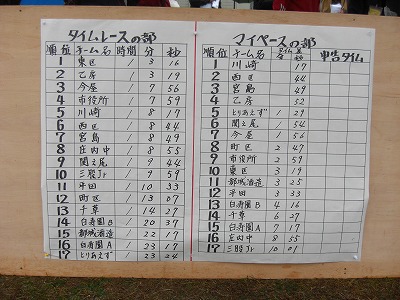 タイムレースの部
順位 チーム名 時間 分 秒
1 東区 1 3 16
2 乙房 1 3 19
3 今屋 1 7 56
4 市役所 1 7 59
5 川崎 1 8 17
6 西区 1 8 44
7 宮島 1 8 49
8 庄内中 1 8 55
9 関之尾 1 9 44
10 三股Jr 1 9 51
11 平田 1 10 33
12 町区 1 13 07
13 千草 1 14 27
14 白寿園B 1 20 37
15 都城酒造 1 22 19
16 白寿園A 1 23 17
17 とりあえず 1 23 24
マイペースの部
順位 チーム名 タイム差 分 秒 申告タイム
1 川崎 17
2 西区 44
3 宮島 49
4 乙房 52
5 とりあえず 1 29
6 関之尾 1 54
7 今屋 1 56
8 町区 2 47
9 市役所 2 59
10 東区 3 19
11 都城酒造 3 25
12 平田 3 33
13 白寿園B 4 16
14 千草 6 27
15 白寿園A 7 17
16 庄内中 8 55
17 三股Jr 10 01